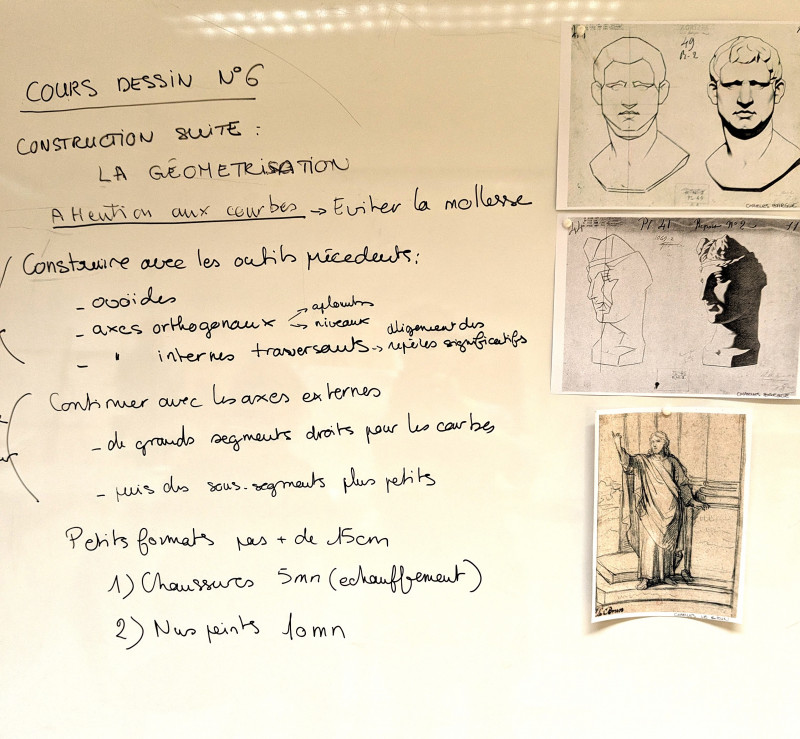 COURS DESSIN N°6
CONSTRUCTION SUITE :
LA GÉOMETRISATION
Attention aux courbes → Eviter la mollesse
Construire avec les outils précedents :
- ovoïdes
- axes orthogonaux → aplombs
→ niveaux
- " internes traversants → alignement des repères significatifs
Continuer avec les axes externes
- de grands segments droits pour les courbes
- puis des sous-segments plus petits
Petits formats pas + de 15cm
1) Chaussures 5mn (echauffement)
2) Nus peints 10mn
49
CHARLES BARGUE
Pl 41
N°2
CHARLES BARGUE
CHARLES LE BRUN